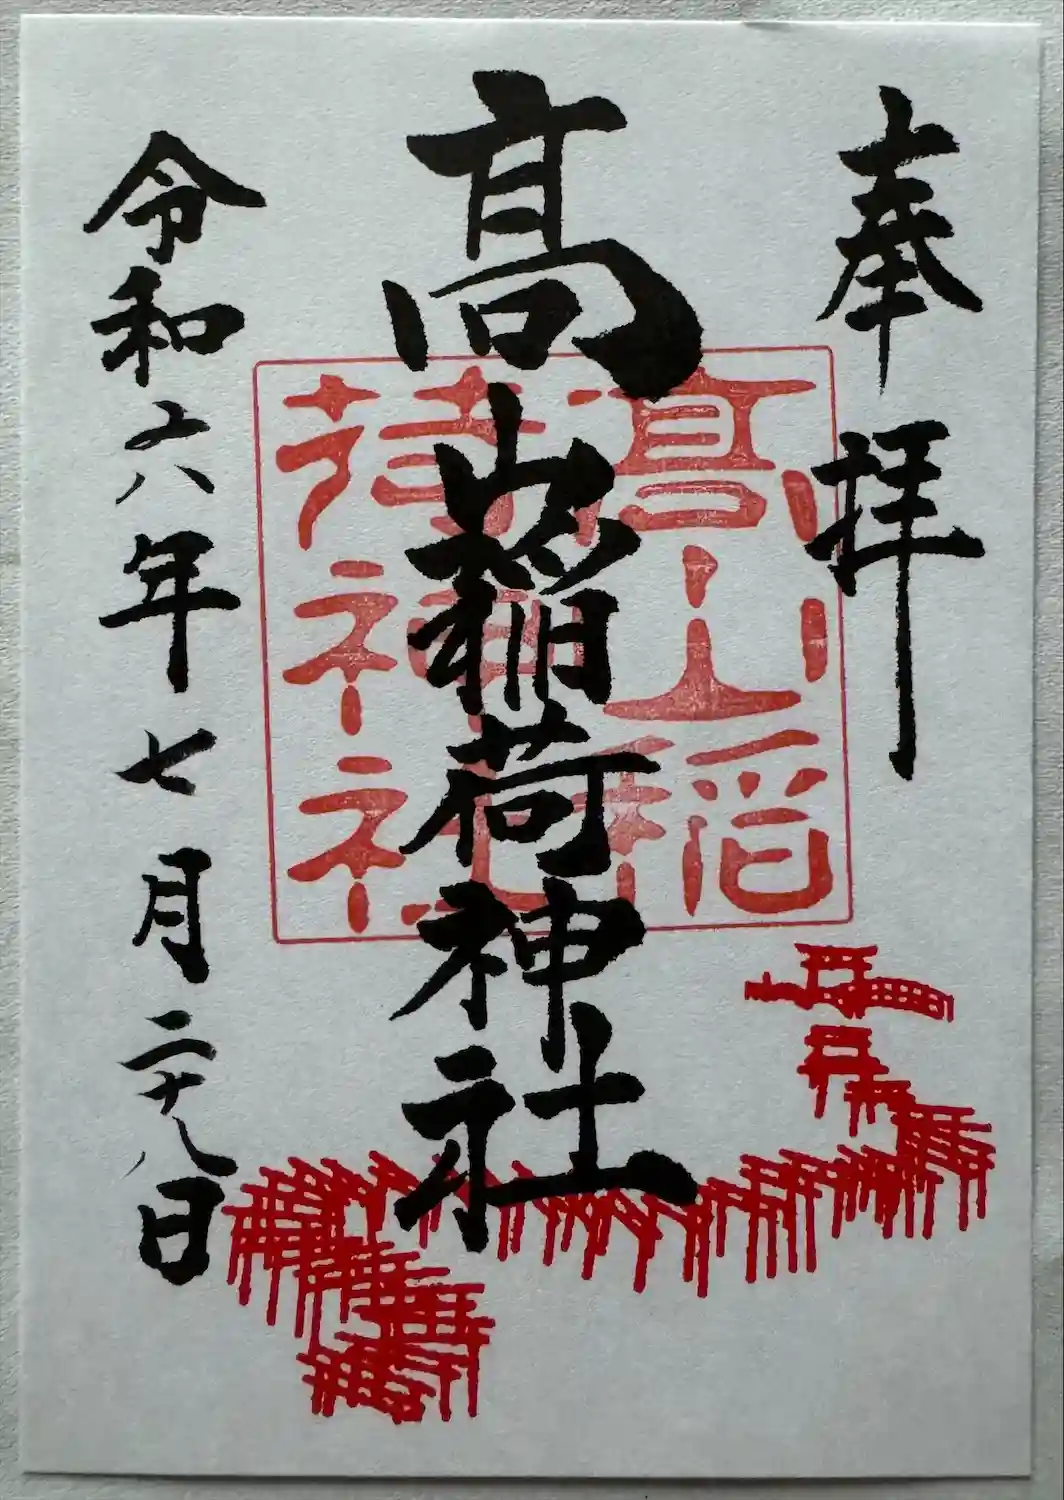 奉拝
髙山稲荷神社
令和六年七月二十八日
髙山稲
荷神社